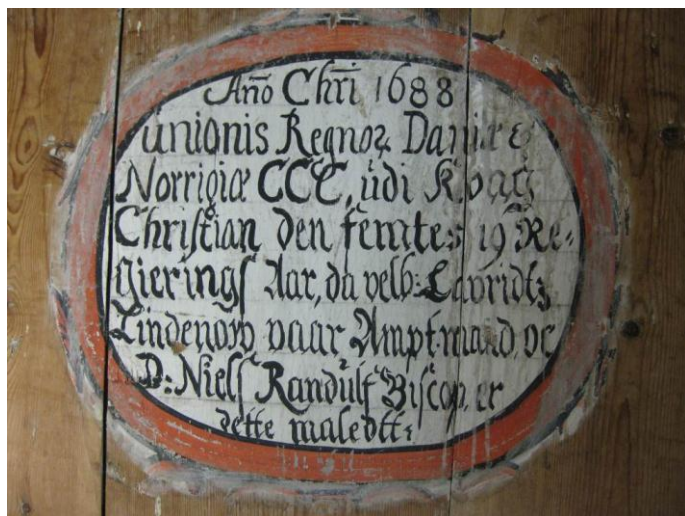 Año Chri 1688
unionis Regnoꝝ Daniæ &
Norrigiæ CCC, udi Kong
Christian den femtes 19 Re-
gierings Aar, da velb: Lavridtz
Lindenow vaar Amptmand, oc
D: Niels Randulf Biscop, er
dette maledtt: